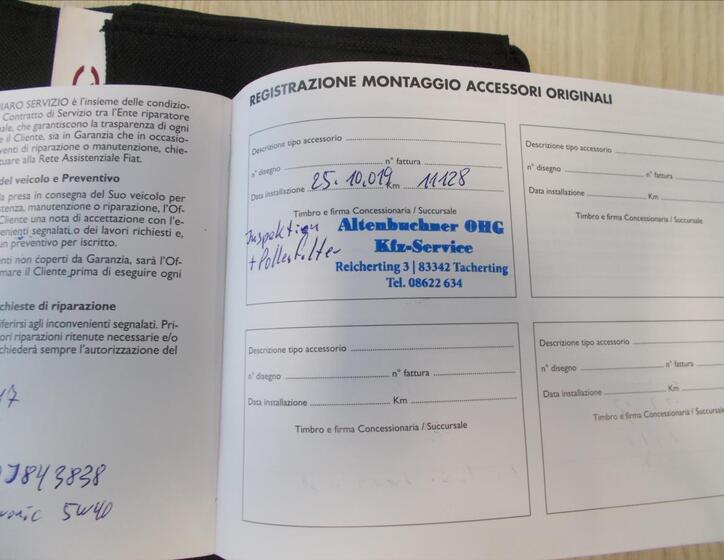 IARO SERVIZIO è l'insieme delle condizio-
Contratto di Servizio tra l'Ente riparatore
ale, che garantiscono la trasparenza di ogni
e il Cliente, sia in Garanzia che in occasio-
venti di riparazione o manutenzione, chie-
tuare alla Rete Assistenziale Fiat.
del veicolo e Preventivo
la presa in consegna del Suo veicolo per
stenza, manutenzione o riparazione, l'Of-
Cliente una nota di accettazione con l'e-
venienti segnalati, o dei lavori richiesti e,
un preventivo per iscritto.
nti non coperti da Garanzia, sarà l'Of-
mare il Cliente prima di eseguire ogni
chieste di riparazione
iferirsi agli inconvenienti segnalati. Pri-
ori riparazioni ritenute necessarie e/o
chiederà sempre l'autorizzazione del
17
J843838
5W40
REGISTRAZIONE MONTAGGIO ACCESSORI ORIGINALI
Descrizione tipo accessorio
n° disegno n° fattura
Data installazione 25.10.019 Km 11128
Timbro e firma Concessionaria / Succursale
Inspektion
+ Pollenfilter
Altenbuchner OHG
Kfz-Service
Reicherting 3 | 83342 Tacherting
Tel. 08622 634
Descrizione tipo accessorio
n° disegno n° fattura
Data installazione Km
Timbro e firma Concessionaria / Succursale
Descrizione tipo accessorio
n° disegno n° fattura
Data installazione Km
Timbro e firma Concessionaria / Succursale
Descrizione tipo accessorio
n° disegno n° fattura
Data installazione Km
Timbro e firma Concessionaria / Succursale